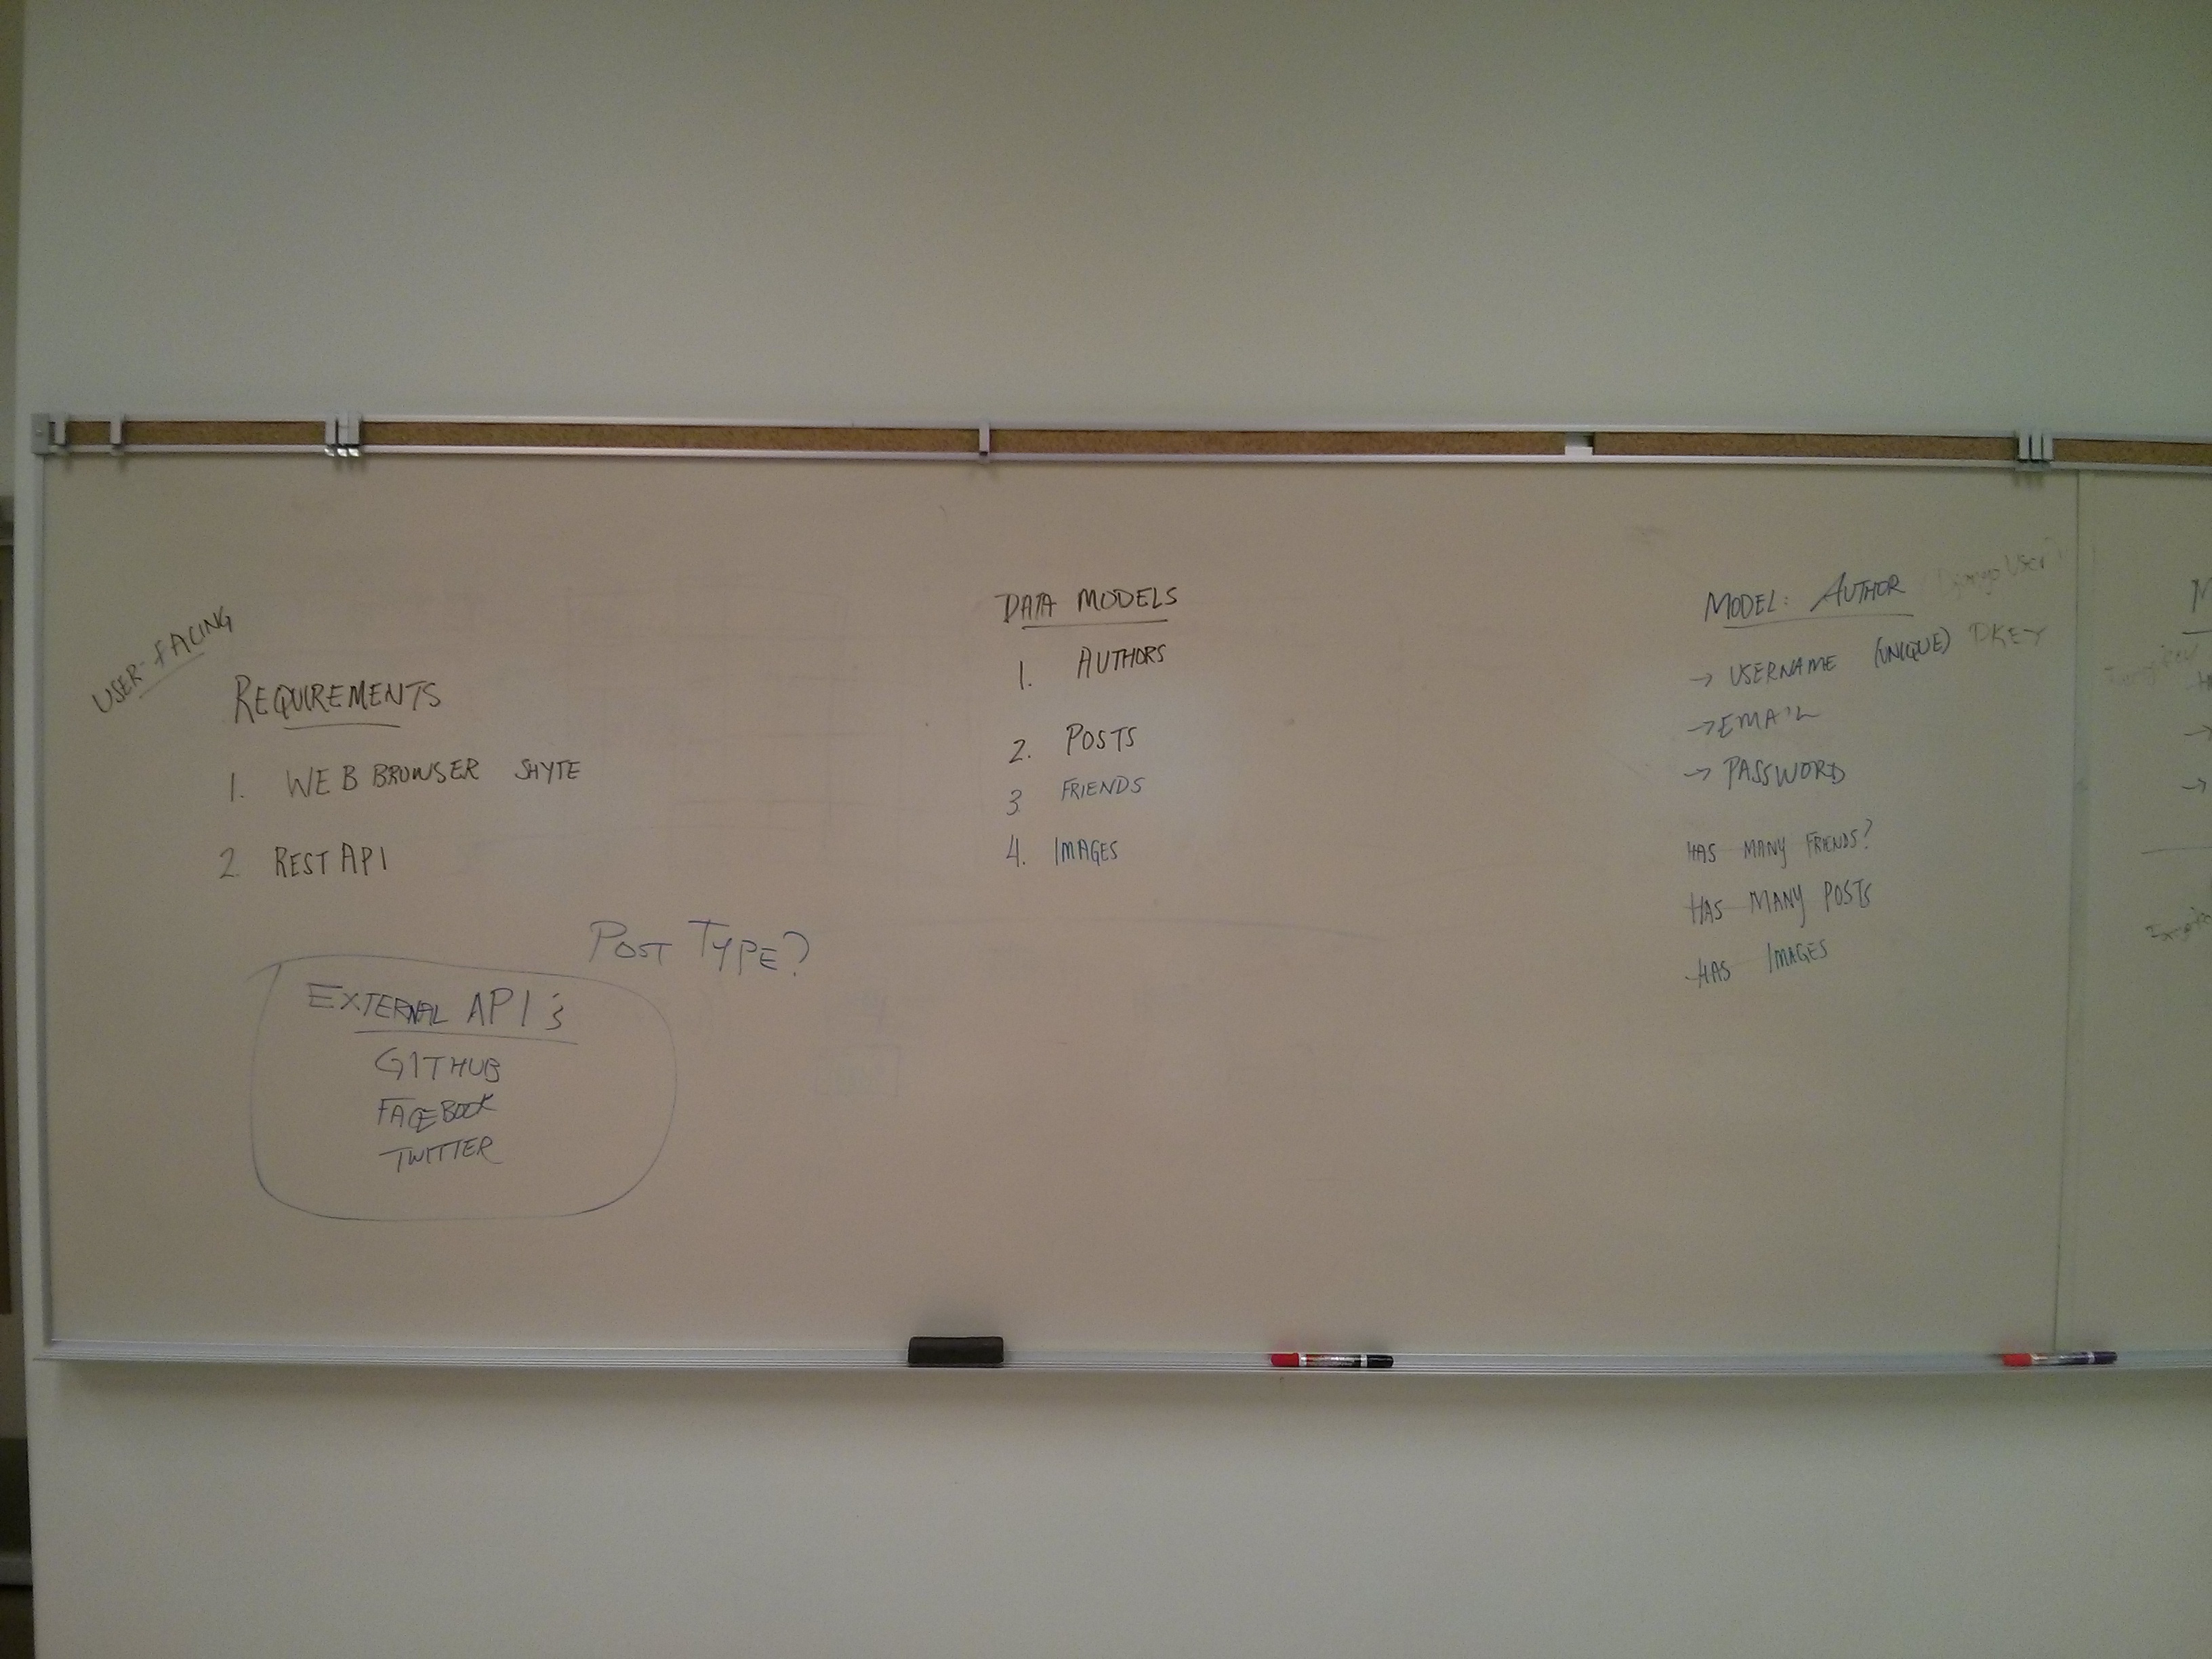 USER-FACING
REQUIREMENTS
1. WEB BROWSER SHYTE
2. REST API
POST TYPE?
EXTERNAL API's
GITHUB
FACEBOOK
TWITTER
DATA MODELS
1. AUTHORS
2. POSTS
3 FRIENDS
4. IMAGES
MODEL: AUTHOR
→ USERNAME (UNIQUE)
→ EMAIL
→ PASSWORD
HAS MANY FRIENDS?
HAS MANY POSTS
HAS IMAGES